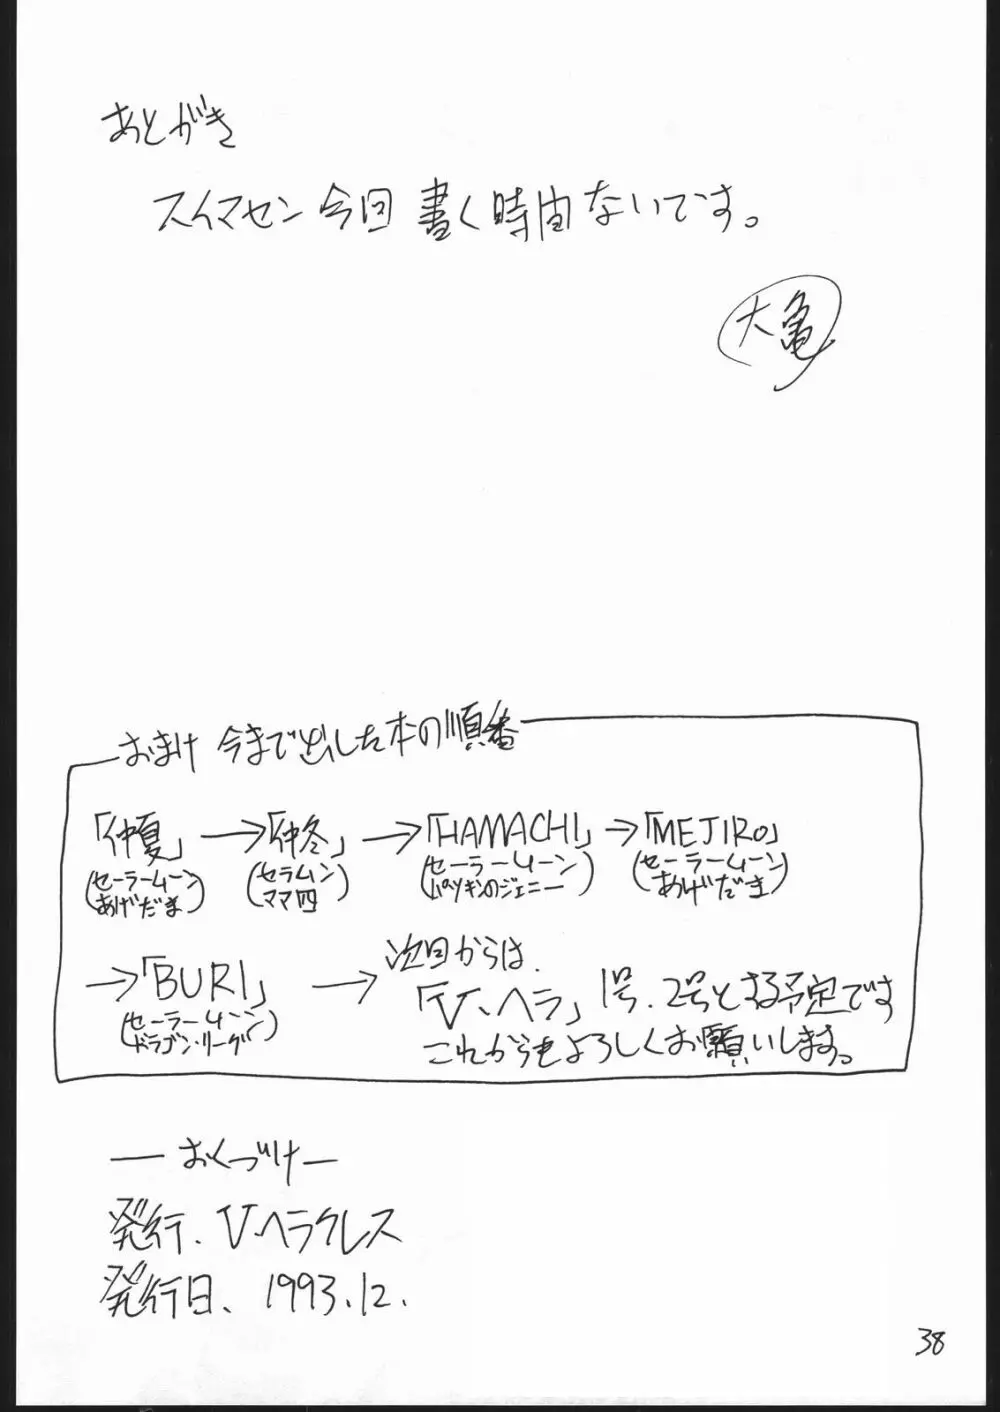 あとがき
スイマセン今回書く時間ないです。
大亀
おまけ 今まで出した本の順番
「仲夏」→「仲冬」→「HAMACHI」→「MEJIRO」
(セーラームーン あげだま) (セラムン ママ四) (セーラームーン パツキンのジェニー) (セーラームーン あげだま)
→「BURI」→ 次回からは、
(セーラームーン ドラゴン・リーグ) 「V、ヘラ」1号、2号とする予定です
これからもよろしくお願いします。
―おくづけ―
発行、V.ヘラクレス
発行日、1993.12.
38